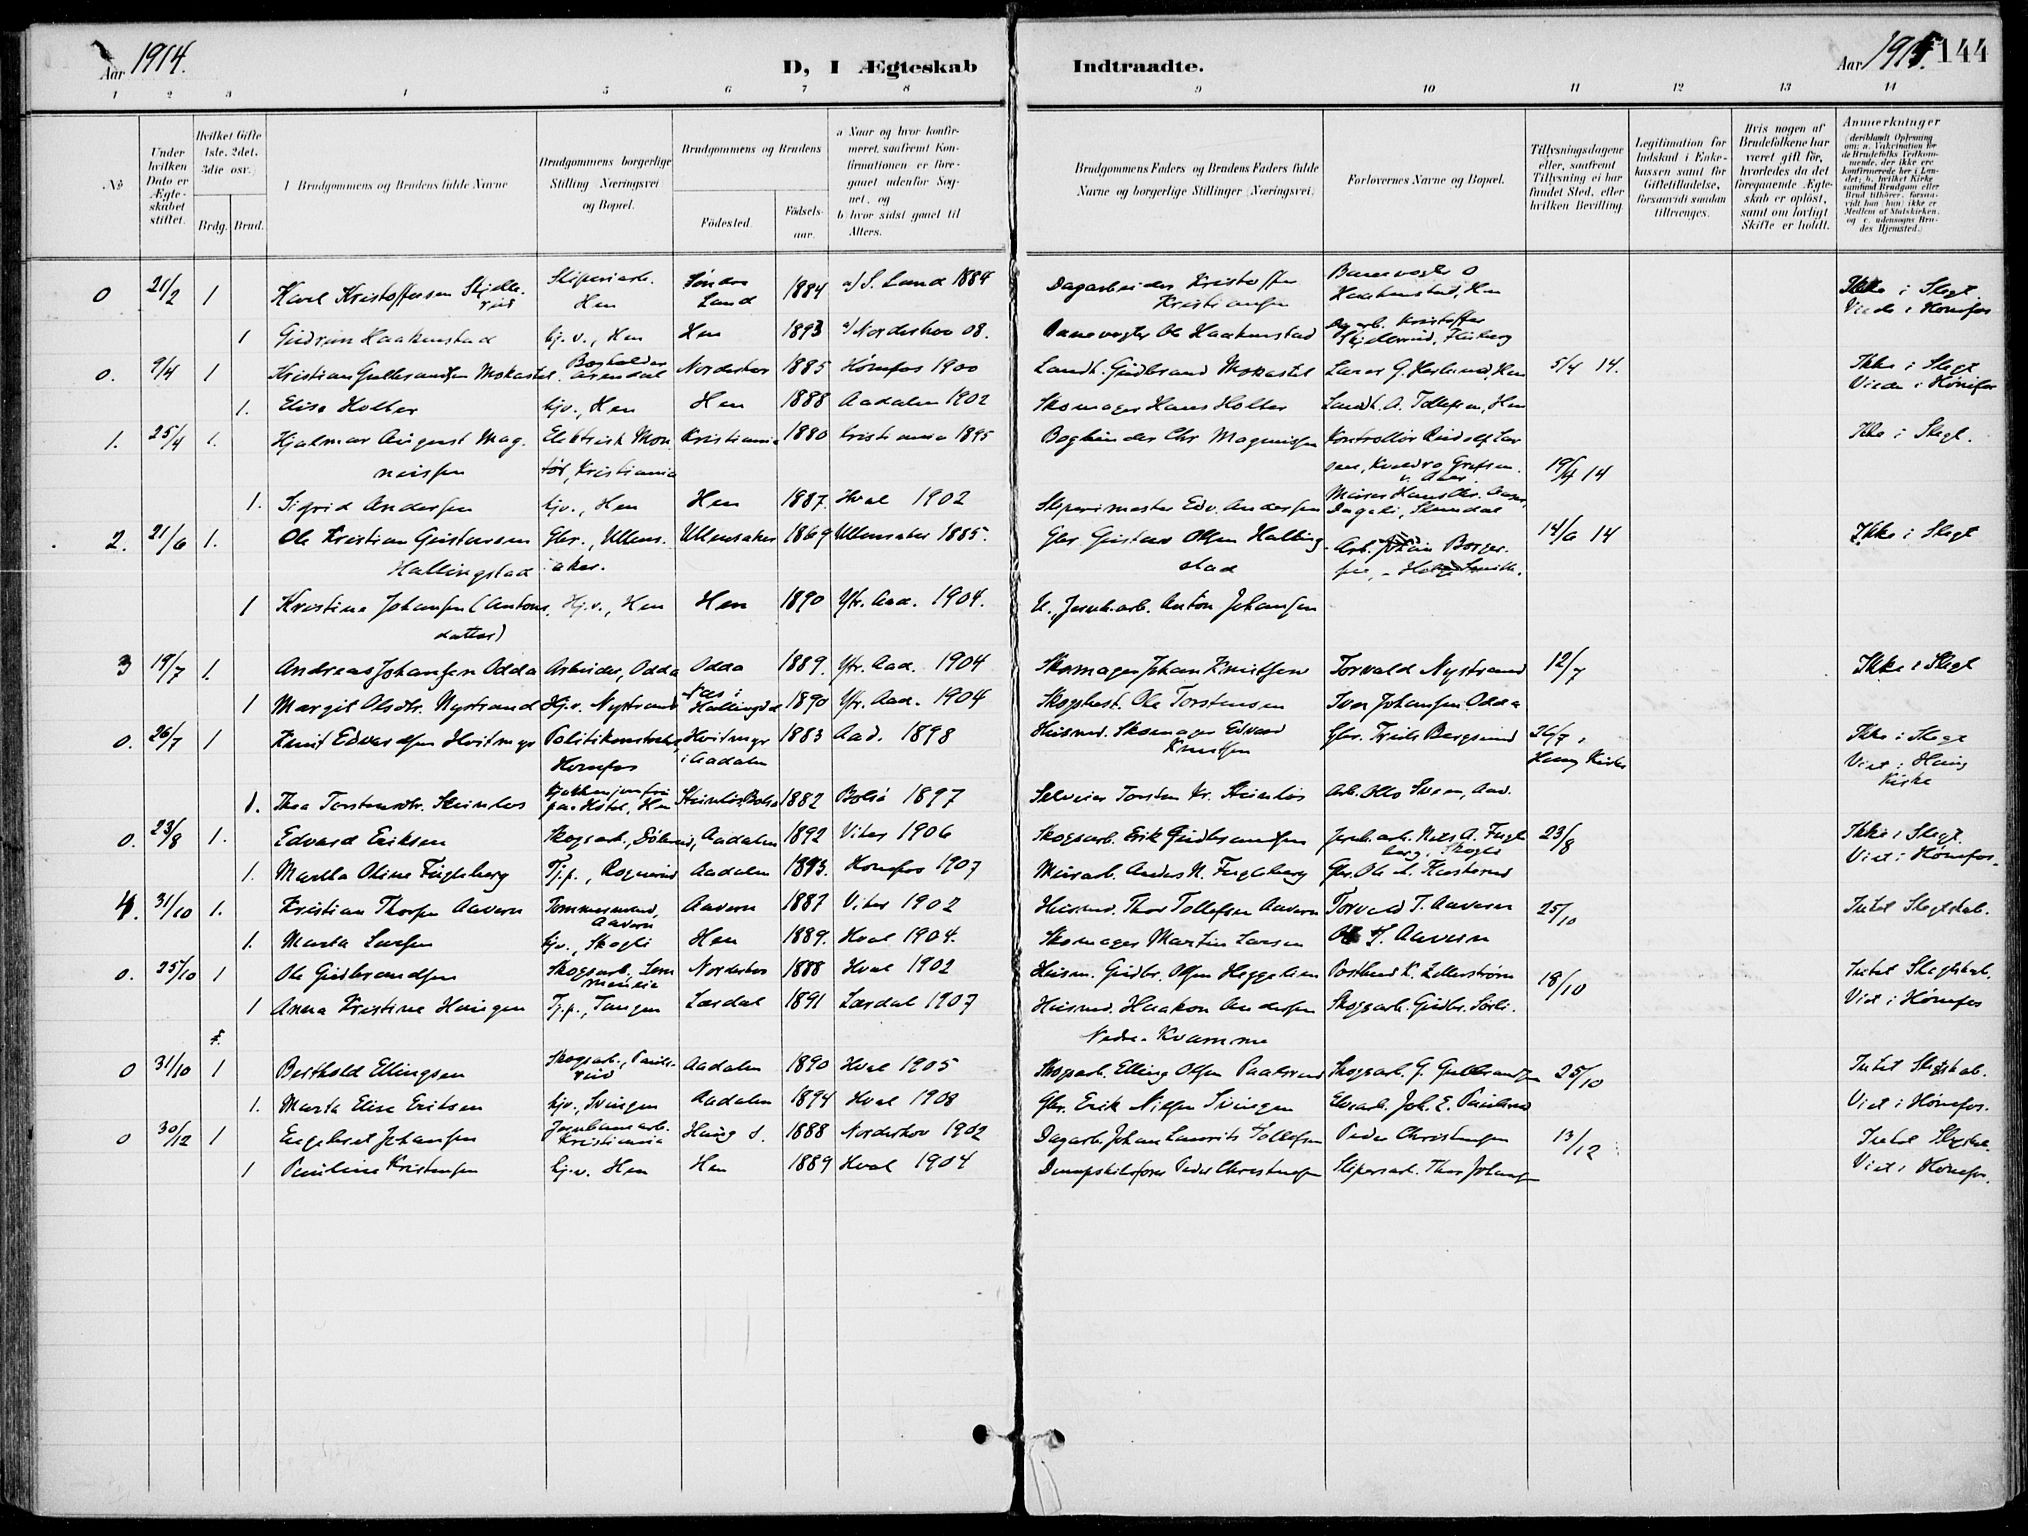 Aar 1914.
D, I Ægteskab Indtraadte.
Aar 1914. 144
1 2 3 4 5 6 7 8 9 10 11 12 13 14
No
Under hvilken Dato er Ægteskabet stiftet.
Hvilket Gifte 1ste, 2det, 3die osv.)
Brdg. Brud.
1 Brudgommens og Brudens fulde Navne
Brudgommens borgerlige Stilling Næringsvei og Bopæl.
Brudgommens og Brudens
Födested. Födselsaar.
a Naar og hvor konfirmeret, saafremt Konfirmationen er foregaaet udenfor Sognet, og
b hvor sidst gaaet til Alters.
Brudgommens Faders og Brudens Faders fulde Navne og borgerlige Stillinger (Næringsvei)
Forlovernes Navne og Bopæl.
Tillysningsdagene eller, saafremt Tillysning ei har fundet Sted, efter hvilken Bevilling
Legitimation for Indskud i Enkekassen samt for Giftetilladelse, forsaavidt saadan tiltrænges.
Hvis nogen af Brudefolkene har været gift för, hvorledes da det foregaaende Ægteskab er oplöst, samt om lovligt Skifte er holdt.
Anmærkninger (deriblandt Oplysning om: a. Vakcination for de Brudefolks Vedkommende, der ikke ere konfirmerede her i Landet; b. hvilket Kirkesamfund Brudgom eller Brud tilhörer, forsaavidt han (hun) ikke er Medlem af Statskirken, og c. udensogns Brudes Hjemsted.)
0 21/2 1 Karl Kristoffersen Skjellerud Sliperiarb. Hen Søndre Land 1884 a) S. Land 1884 Dagarbeider Kristoffer Kristiansen Banevogter O Haakenstad, Hen Ikke i Slegt Viede i Hønefos
1 Gudrun Haakenstad hj.v., Hen Hen 1893 a) Norderhov 08. Banevogter Ole Haakenstad Dagarb. Kristoffer
0. 9/4 1 Kristian Gulbrandsen Mokastet Bogholder Arendal Norderhov 1885 Hønefos 1900 Landh. Gudbrand Mokastet Lars G. Hen 5/4 14. Ikke i Slegt Viede i Hønefos
1. Elise Holter hjv., Hen Hen 1888 Aadalen 1902 Skomager Hans Holter Landh. A. Tollefsen, Hen
1. 25/4 1. Hjalmar August Magnussen Elektrisk Montør, Kristiania Kristiania 1880 Kristiania 1895 Bogbinder Chr Magnussen Kontrollør Rudolf Larsen, 19/4 14 Ikke i Slegt.
1. Sigrid Andersen hjv., Hen Hen 1887. Hval 1902 Sliperimester Edv. Andersen Murer Hans Chr.
2. 21/6 1. Ole Kristian Gustavsen Hallingstad Gbr., Ullensaker. Ullensaker 1869 Ullensaker 1885. Gbr Gustav Olsen Hallingstad Arb. Johan Borger 14/6 14 Ikke i Slegt
1 Kristine Johansen (Antonsdatter) Hj.v., Hen Hen 1890 Ytr. Aad. 1904. U. Jernb.arb. Anton Johansen
3 19/7 1. Andreas Johansen Odda Arbeider, Odda Odda 1889. Ytr. Aad. 1904 Skomager Johan Knutsen Torvald Nystrand 12/7 Ikke i Slegt
1 Margit Olsdtr. Nystrand Hj.v. Nystrand Næs i Hallingdal 1890 Ytr. Aad. 1904 Skogbest. Ole Torstensen Iver Johansen Odda
0. 26/7 1 Knut Edvardsen Hvitmyr Politikonstabel, Hønefos Hvitmyr i Aadalen 1883 Aad. 1898 Husmd. Skomager Edvard Knutsen Gbr. Bergsund 26/7 i Haug Kirke Ikke i Slegt Viet i Haug Kirke
1. Thea Torstensdtr. Steinløs Kjøkkenjomfru paa Hotel, Hen Steinløs Bolsø 1882 Bolsø 1897 Selveier Torsten Kr. Steinløs Arb. Otto Aad.
0. 23/8 1. Edvard Eriksen Skogsarb., Aadalen 1892 Viker 1906 Skogsarb. Erik Gudbrandsen Jernb.arb. Nils A. Fugleberg, Skogli 23/8 Ikke i Slegt. Viet i Hønefos.
1. Martha Oline Fugleberg Tj.p., Aadalen 1893. Hønefos 1907 Murarb. Anders N. Fugleberg Gbr. Ole L.
4. 31/10 1. Kristian Thorsen Aavern Tømmermand, Aavern Aavern 1887 Viker 1902 Husmd. Thor Tollefsen Aavern Torvald T. Aavern 25/10 Intet Slegtskab.
1. Marta Larsen hjv., Skogli Hen 1889. Hval 1904. Skomager Martin Larsen T. Aavern
0. 25/10 1 Ole Gudbrandsen Skogsarb., Norderhov 1888 Hval 1902 Husm. Gudbr. Olsen Heggelien Postbud K. Zetterstrøm 18/10 Intet Slegtskab. Viet i Hønefos
1 Anna Kristine Haugen Tj.p., Tangen Lærdal 1891 Lærdal 1907 Husmd. Haakon Andersen Nedre-Kvamme Skogsarb. Gudbr.
0 31/10 1 Berthold Ellingsen Skogsarb., Aadalen 1890 Hval 1905 Skogsarb. Elling Olsen Skogsarb. G. Gulbrandsen 25/10 Intet Slegtskab.
1. Marta Elise Eriksen hjv., Svingen Aadalen 1894 Hval 1908 Gbr. Erik Nilsen Svingen Elvearb. Joh. E. Viet i Hønefos.
0 30/12 1 Engebret Johansen Jernbanearb. Kristiania Haug S. 1888 Norderhov 1902 Dagarb. Johan Laurits Tollefsen Peder Christensen 13/12 Intet Slegtskab.
1 Pauline Kristensen hj.v. Hen Hen 1889 Hval 1904 Peder Christensen Sliperiarb. Thor Johansen Viet i Hønefos.